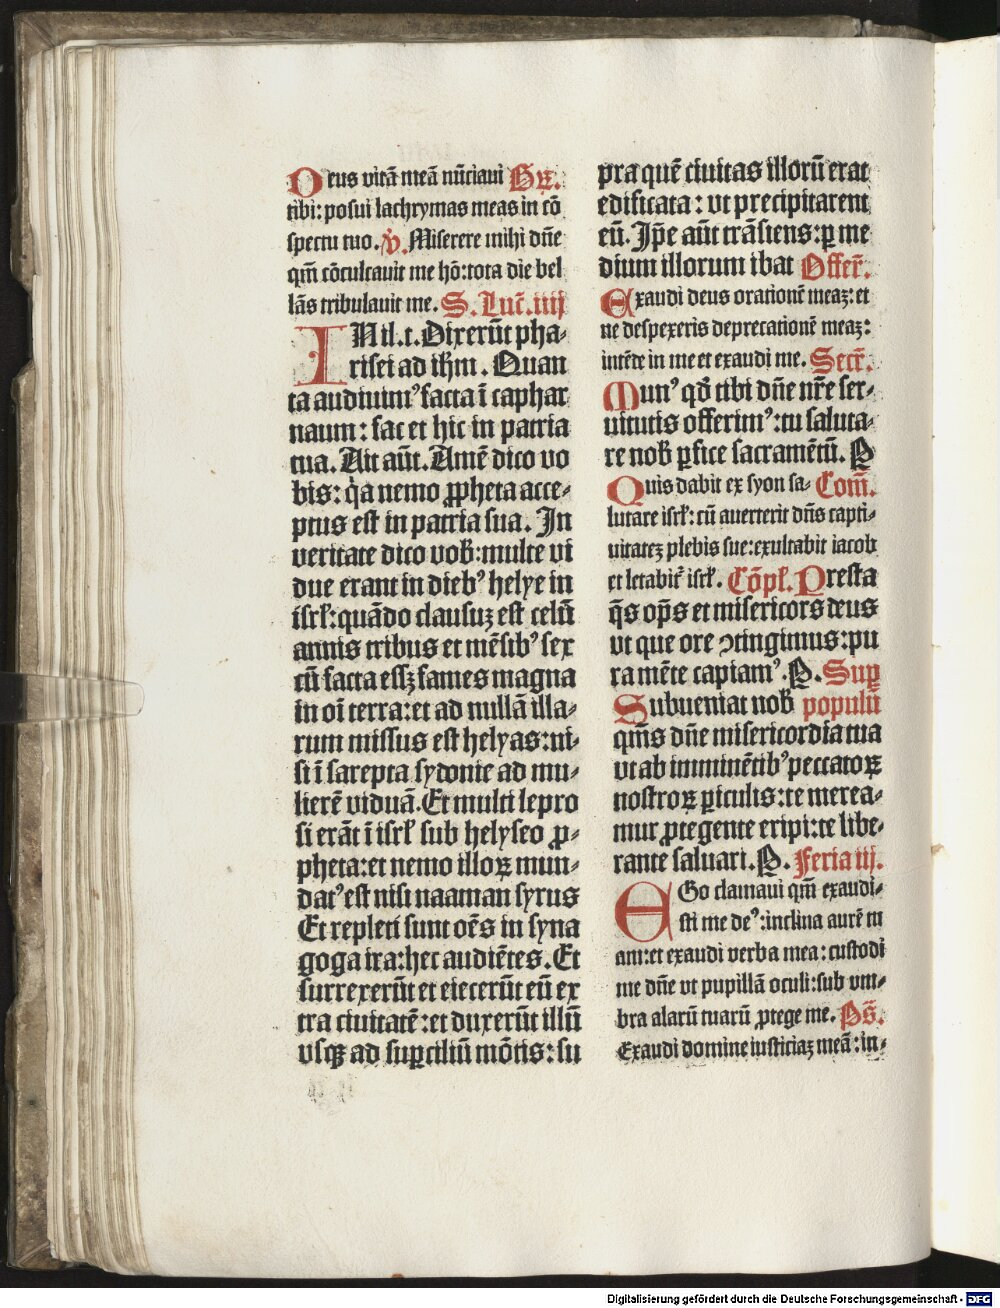 Deus vitā meā nūciavi Gr̄.
tibi: posui lachrymas meas in cō
spectu tuo. v̄. Miserere mihi dn̄e
qm̄ cōculcavit me hō: tota die bel
lās tribulavit me. S. Luc̄. iiij
IN il. t. Dixerūt pha-
risei ad ihm̄. Quan
ta audiuimꝰ facta ī caphar
naum: fac et hic in patria
tua. Ait aūt. Amē dico vo
bis: q̇a nemo ꝓpheta acce-
ptus est in patria sua. In
veritate dico vob̄: multe vi
due erant in diebꝰ helye in
isrl̄: quādo clausuꝫ est celū
annis tribus et mēsibꝰ sex
cū facta essꝫ fames magna
in oī terra: et ad nullā illa-
rum missus est helyas: ni-
si ī sarepta sydonie ad mu-
lierē viduā. Et multi lepro
si erāt ī isrl̄ sub helyseo ꝓ-
pheta: et nemo illoꝝ mun-
datꝰ est nisi naaman syrus
Et repleti sunt oēs in syna
goga ira: hec audiētes. Et
surrexerūt et eiecerūt eū ex
tra ciuitatē: et duxerūt illū
vsqꝫ ad suꝑciliū mōtis: su
pra quē ciuitas illorū erat
edificata: vt precipitarent
eū. Ip̄e aūt trāsiens: ꝑ me
dium illorum ibat Offer̄.
Exaudi deus orationē meaꝫ: et
ne despexeris deprecationē meaꝫ:
intēde in me et exaudi me. Secr̄.
Munꝰ qd̄ tibi dn̄e nr̄e ser-
uitutis offerimꝰ: tu saluta-
re nob̄ ꝑfice sacramētū. P
Quis dabit ex syon sa- Com̄.
lutare isrl̄: cū auerterit dn̄s capti-
uitateꝫ plebis sue: exultabit iacob
et letabit᷑ isrl̄. Cōpl̄. Presta
q̄s op̄s et misericors deus
vt que ore ꝯtingimus: pu
ra mēte capiamꝰ. P. Suꝑ
Subueniat nob̄ populū
qm̄s dn̄e misericordia tua
vt ab imminētibꝰ peccatoꝝ
nostroꝝ ꝑiculis: te merea-
mur ꝓtegente eripi: te libe-
rante saluari. P. Feria iij.
EGo clamaui qm̄ exaudi-
sti me deꝰ: inclina aurē tu
am: et exaudi verba mea: custodi
me dn̄e vt pupillā oculi: sub vm-
bra alarū tuarū ꝓtege me. Ps̄.
Exaudi domine iusticiaꝫ meā: in-
Digitalisierung gefördert durch die Deutsche Forschungsgemeinschaft - DFG